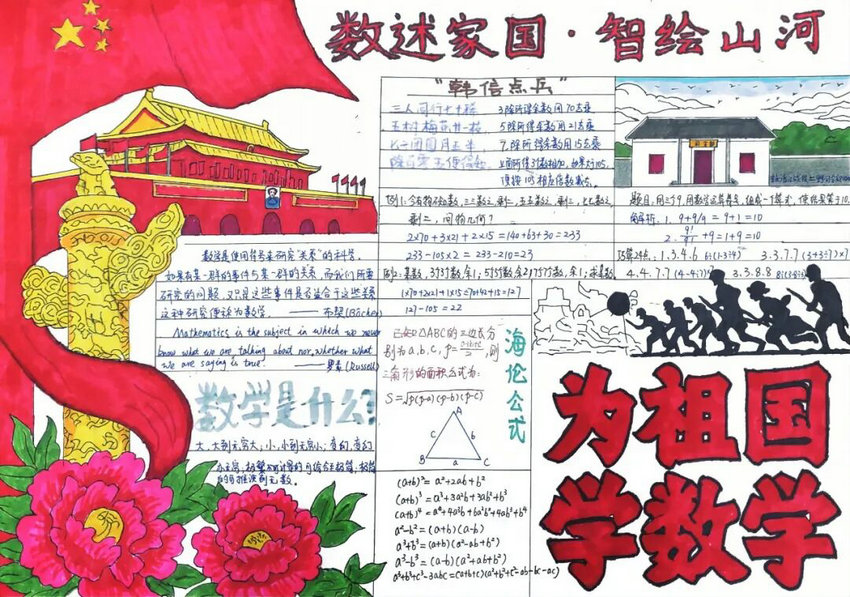 数述家国·智绘山河
“韩信点兵”
三人同行七十稀
五树梅花廿一枝
七子团圆月正半
除百零五便得知
3除所得余数用70去乘
5除所得余数用21去乘
7除所得余数用15去乘
上面所得3个数相加,如果大于105,
须按105相应倍数减去。
例1:今有物不知数,三三数之,剩二,五五数之,剩三,七七数之,
剩二,问物几何?
2×70+3×21+2×15=140+63+30=233
233-105×2=233-210=23
1×70+2×21+1×15=70+42+15=127
127-105=22
题目:用三个9,用数学运算符号,组成一个算式,使结果等于10.
1. 9+9/9=9+1=10
+9=1+9=10
巧算24点:
1.3.4.6
3.3.7.7 (3+3÷7)×7
4.4.7.7
3.3.8.8
数学是使用符号来研究“关系”的科学。
如果有某一群的事件与某一群的关系,而我们所要
研究的问题,又只是这些事件是否适合于这些关系
这种研究便称为数学。
(Bôcher)
Mathematics is the subject in which we never
know what we are talking about nor whether what
we are saying is true.
——罗素(Russell)
数学是什么?
大,大到无穷大;小,小到无穷小;
已知△ABC的三边长分
别为a,b,c, p=a+b+c/2,则
三角形的面积公式为:
S=√p(p-a)(p-b)(p-c)
A
c
b
B
a
C
海伦公式
(a+b)²=a²+2ab+b²
(a+b)³=a³+3a²b+3ab²+b³
(a+b)⁴=a⁴+4a³b+6a²b²+4ab³+b⁴
a²-b²=(a+b)(a-b)
a³+b³=(a+b)(a²-ab+b²)
a³-b³=(a-b)(a²+ab+b²)
a³+b³+c³-3abc=(a+b+c)(a²+b²+c²-ab-bc-ac)
为祖国
学数学